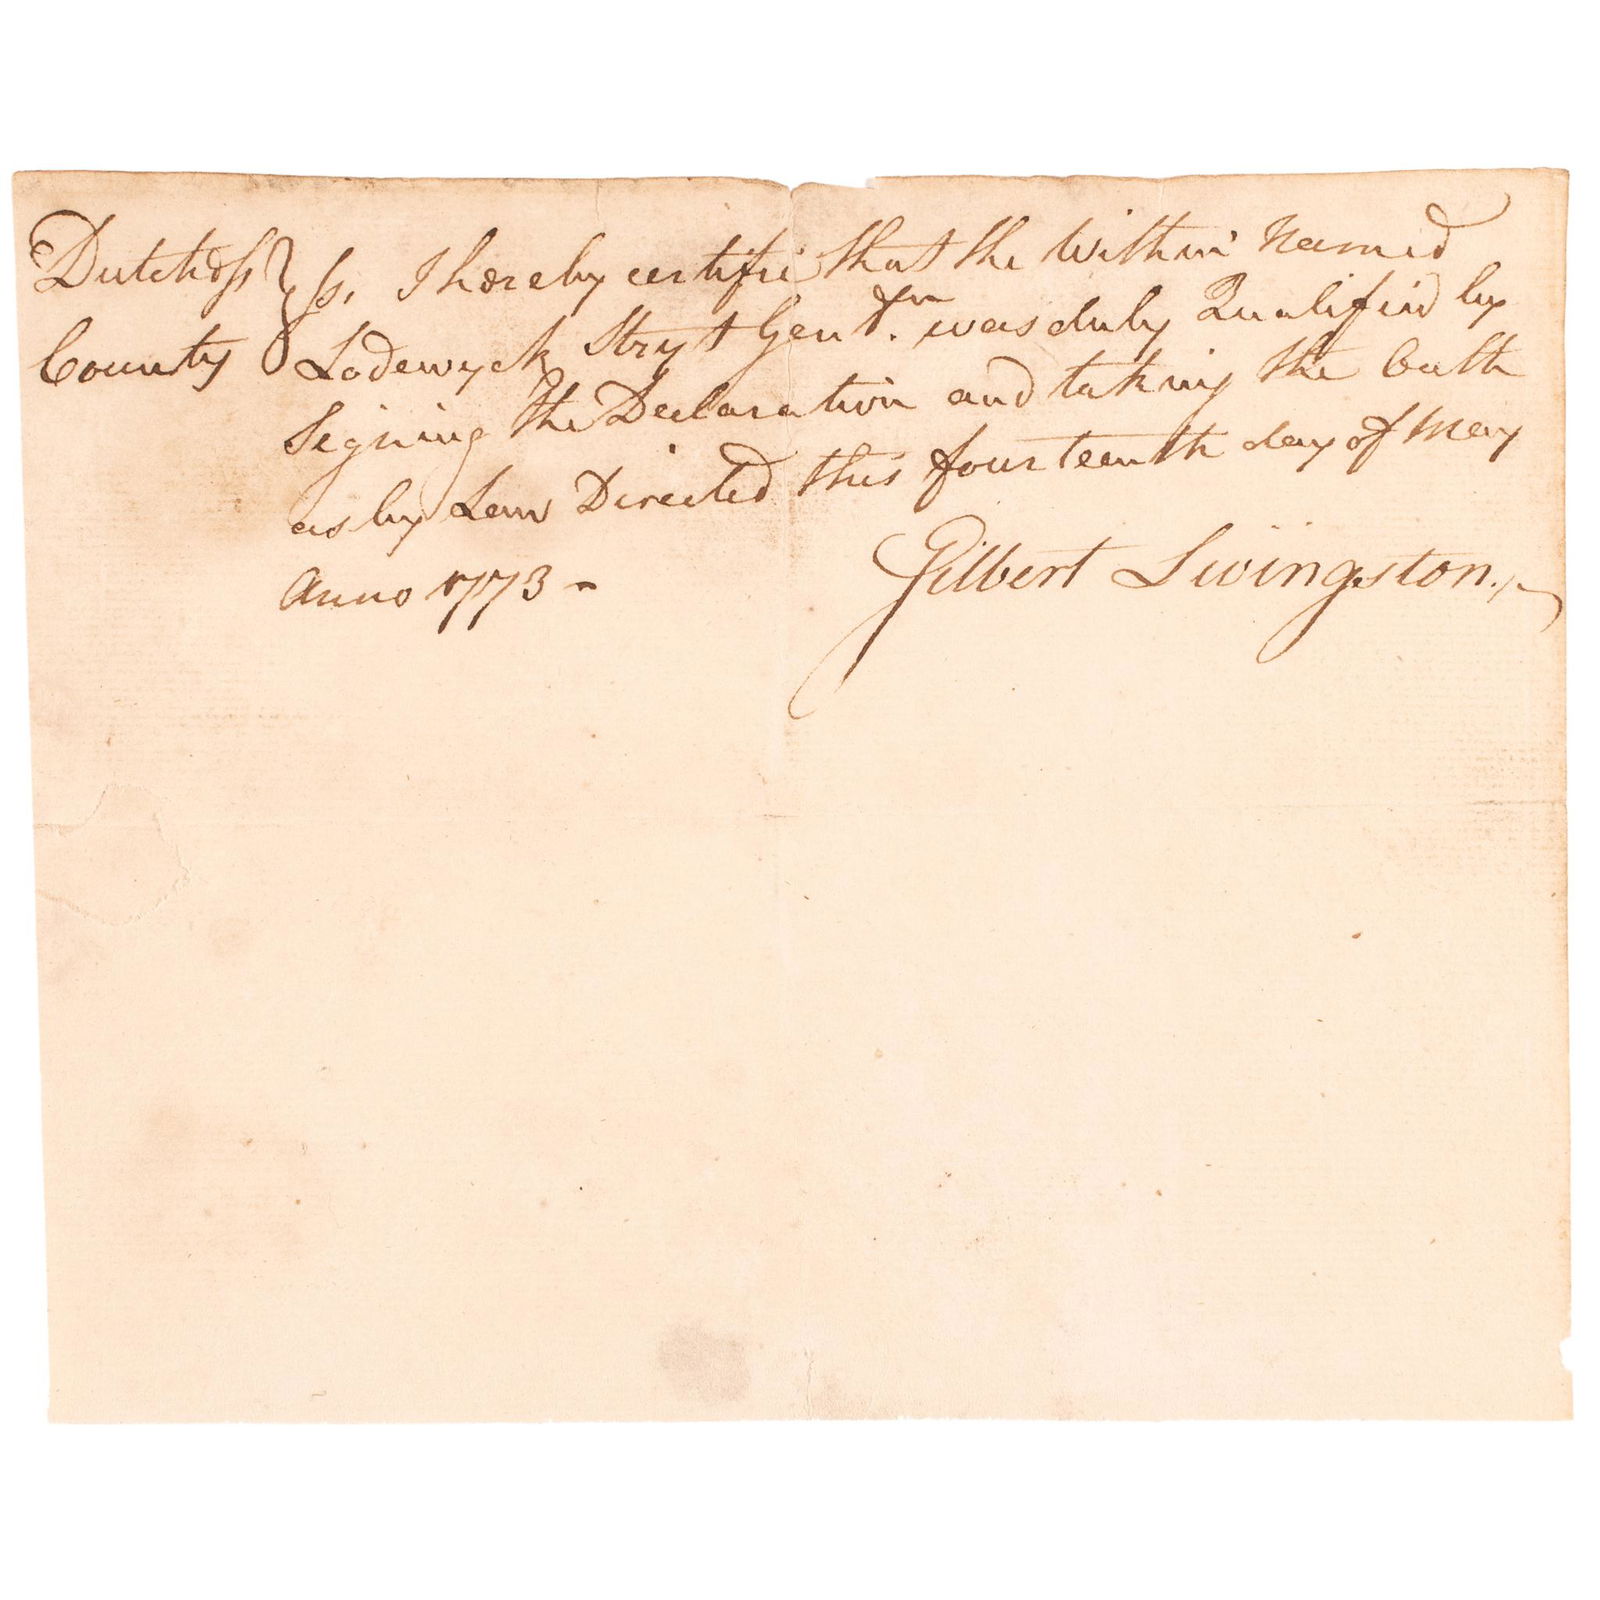 Dutchess } ss, I hereby certifie that the Within Named
County } Lodewyck Stryt Gentn. was duly Qualified by
Signing the Declaration and taking the Oath
as by Law Directed this fourteenth day of May
Anno 1773 -
Gilbert Livingston.